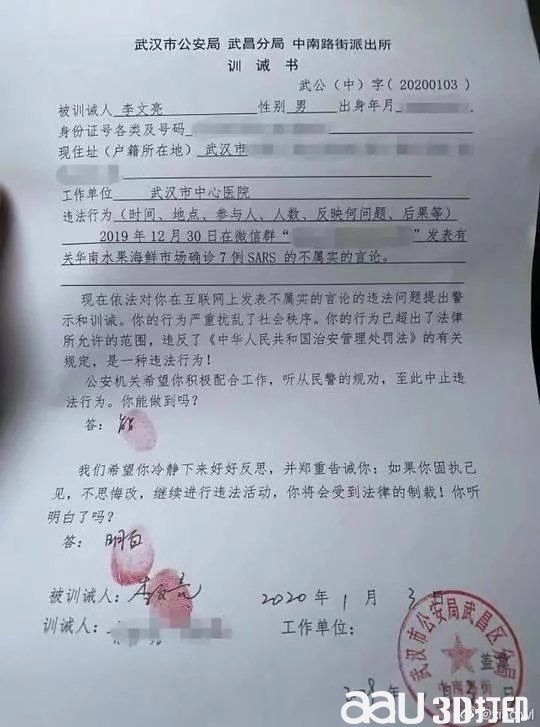 武汉市公安局 武昌分局 中南路街派出所
训 诫 书
武公（中）字（20200103）
被训诫人 李文亮 性别 男 出身年月
身份证号各类及号码
现住址（户籍所在地） 武汉市
工作单位 武汉市中心医院
违法行为（时间、地点、参与人、人数、反映何问题、后果等）
2019年12月30日在微信群“ ”发表有
关华南水果海鲜市场确诊7例SARS的不属实的言论。
现在依法对你在互联网上发表不属实的言论的违法问题提出警
示和训诫。你的行为严重扰乱了社会秩序。你的行为已超出了法律
所允许的范围，违反了《中华人民共和国治安管理处罚法》的有关
规定，是一种违法行为！
公安机关希望你积极配合工作，听从民警的规劝，至此中止违
法行为。你能做到吗？
答：能
我们希望你冷静下来好好反思，并郑重告诫你：如果你固执己
见，不思悔改，继续进行违法活动，你将会受到法律的制裁！你听
明白了吗？
答：明白
被训诫人：李文亮 2020年1月3日
训诫人： 工作单位：
武汉市公安局武昌区分局
盖章
年 日
aau3D打印